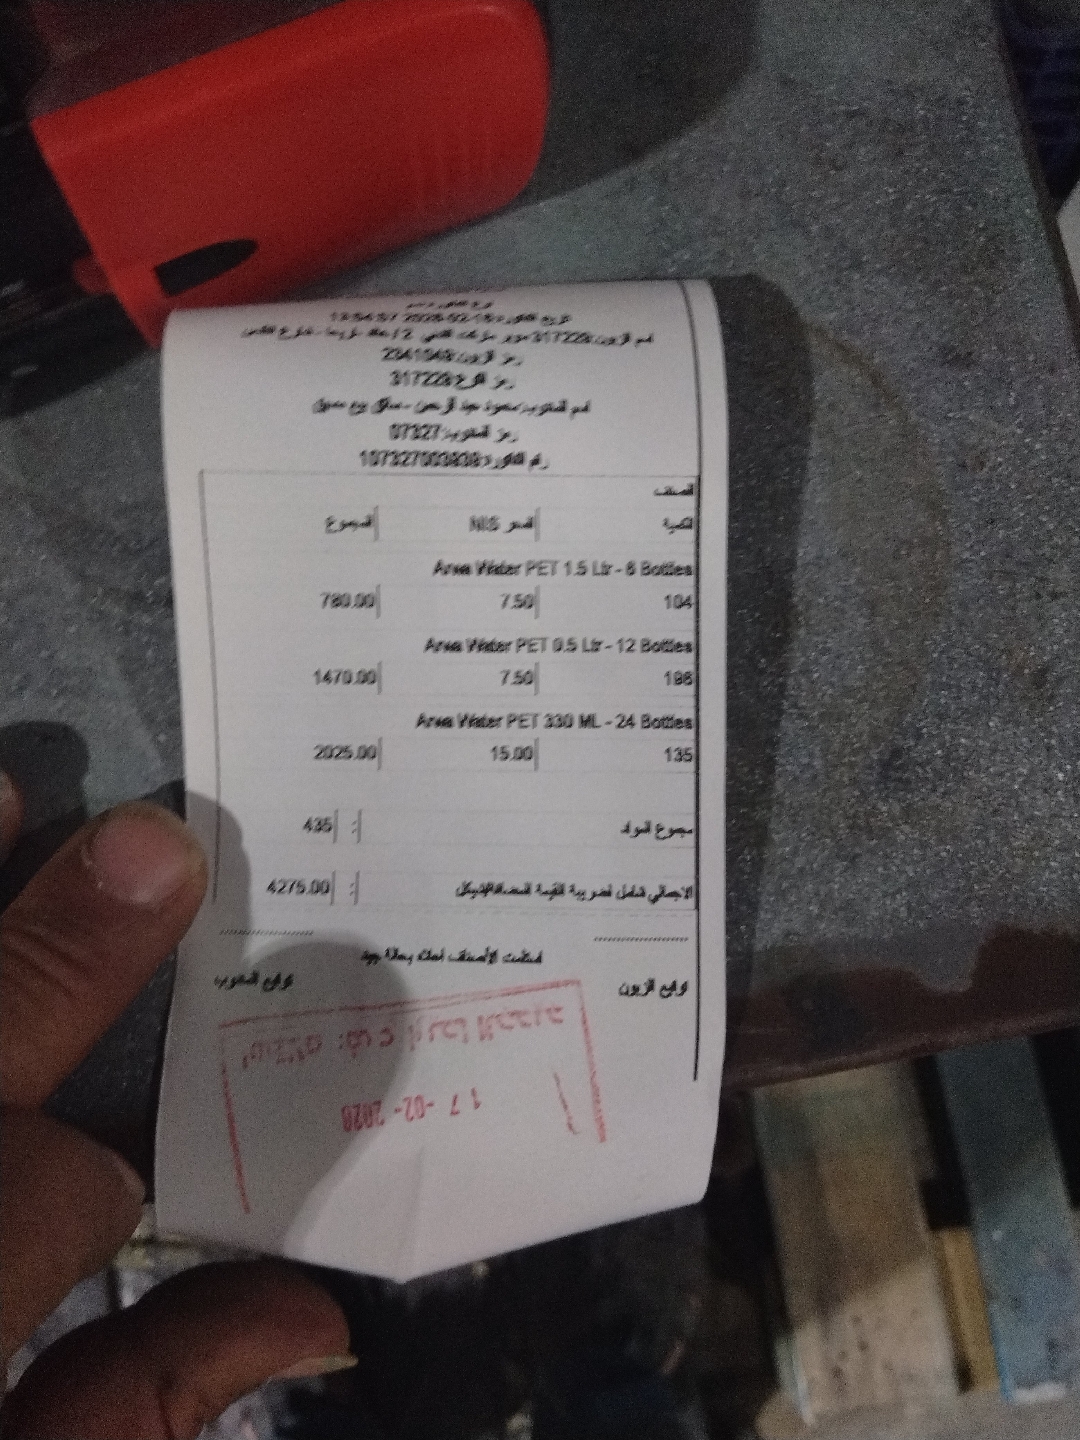 نوع الفاتورة:
تاريخ الفاتورة:2026-02-16
اسم الزبون:317229
رمز الزبون:2341048
رمز الفرع:317229
اسم المندوب:محمود عبد الرحمن -
رمز المندوب:07327
رقم الفاتورة:
الصنف
الكمية السعر NIS المجموع
Arwa Water PET 1.5 Ltr - 6 Bottles
104 7.50 780.00
Arwa Water PET 0.5 Ltr - 12 Bottles
196 7.50 1470.00
Arwa Water PET 330 ML - 24 Bottles
135 15.00 2025.00
مجموع المواد : 435
الاجمالي شامل لضريبة القيمة المضافة/شيكل : 4275.00
استلمت الأصناف اعلاه بحالة جيد
توقيع الزبون توقيع المندوب
اريحا الجديد
17 -02- 2026